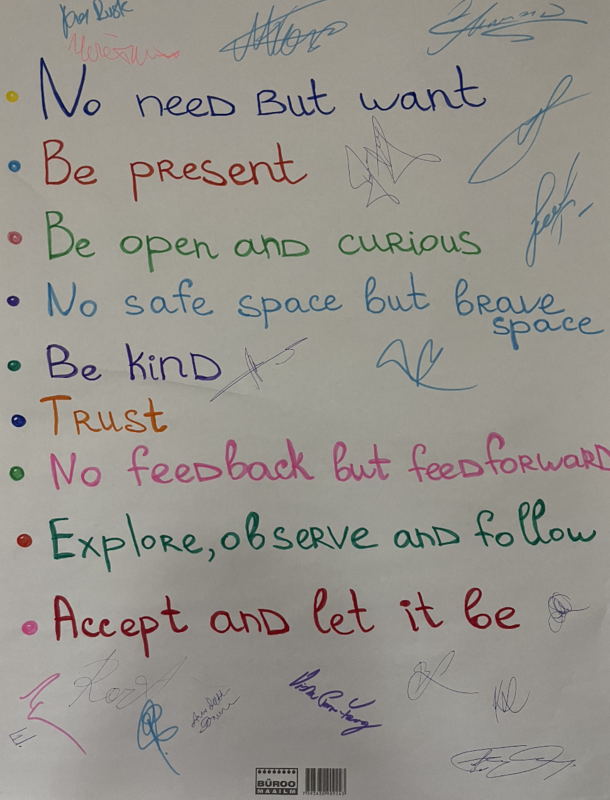 No need but want
Be present
Be open and curious
No safe space but brave
space
Be kind
Trust
No feedback but feedforward
Explore, observe and follow
Accept and let it be
E.
BÜROO
MAAILM